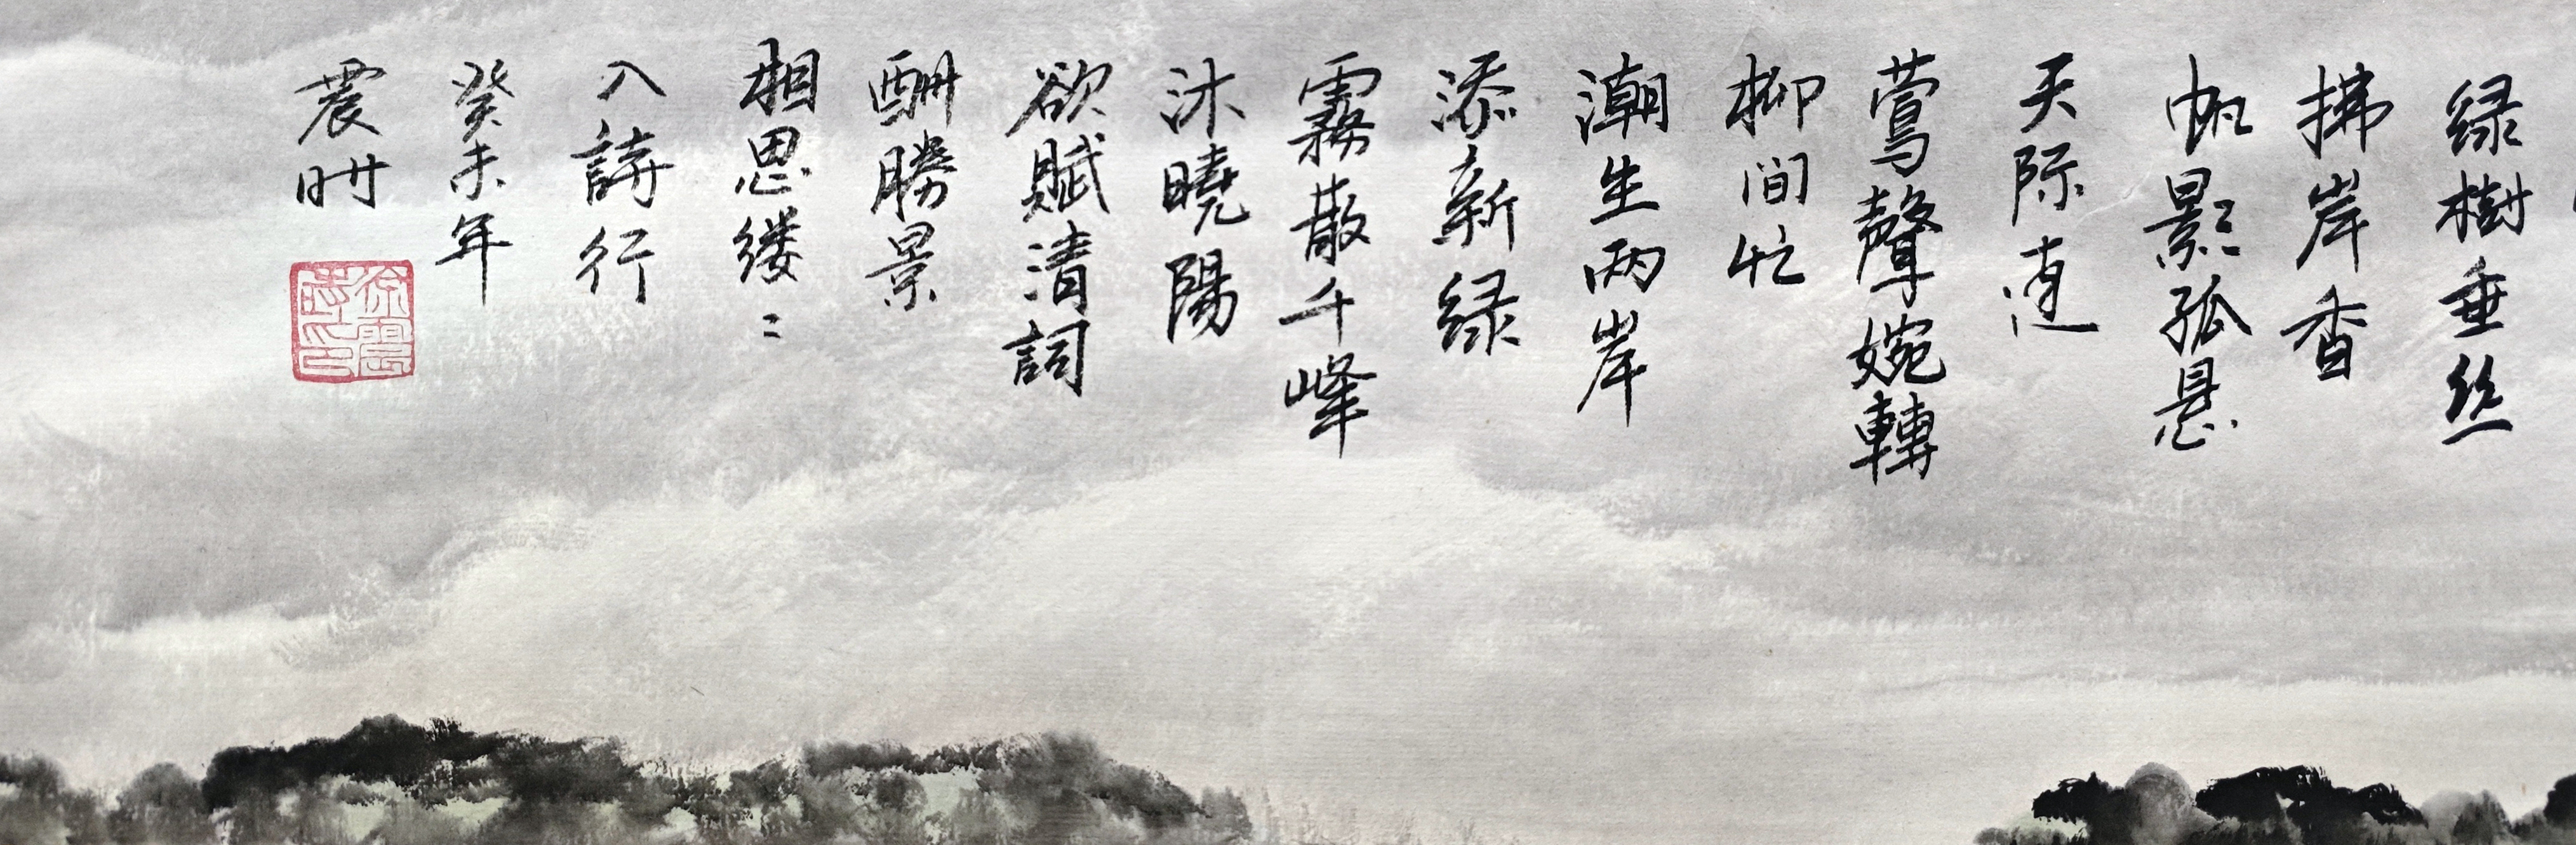 绿樹垂丝
拂岸香
帆影孤悬
天际遠
莺聲婉轉
柳间忙
潮生两岸
添新绿
霧散千峰
沐曉陽
欲賦清詞
酬勝景
相思缕〻
入詩行
癸未年
震时